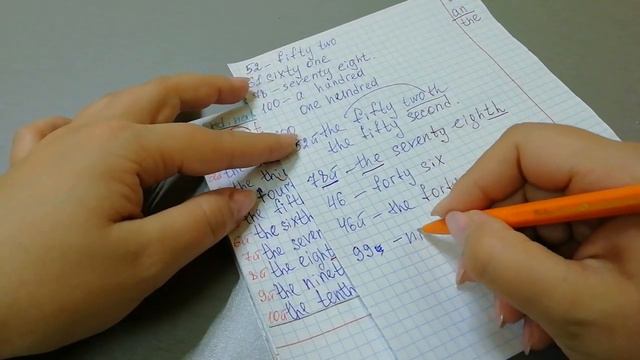 an
the
52 - fifty two
sixty one
- seventy eight.
100 - a hundred
one hundred
52й the fifty twoth
the fifty second.
78й - the seventy eighth
46 - forty six
46й - the forty
99 - ni
the
the
the sixth
7й the seven
8й the eight
9й the ninet
10й the tenth